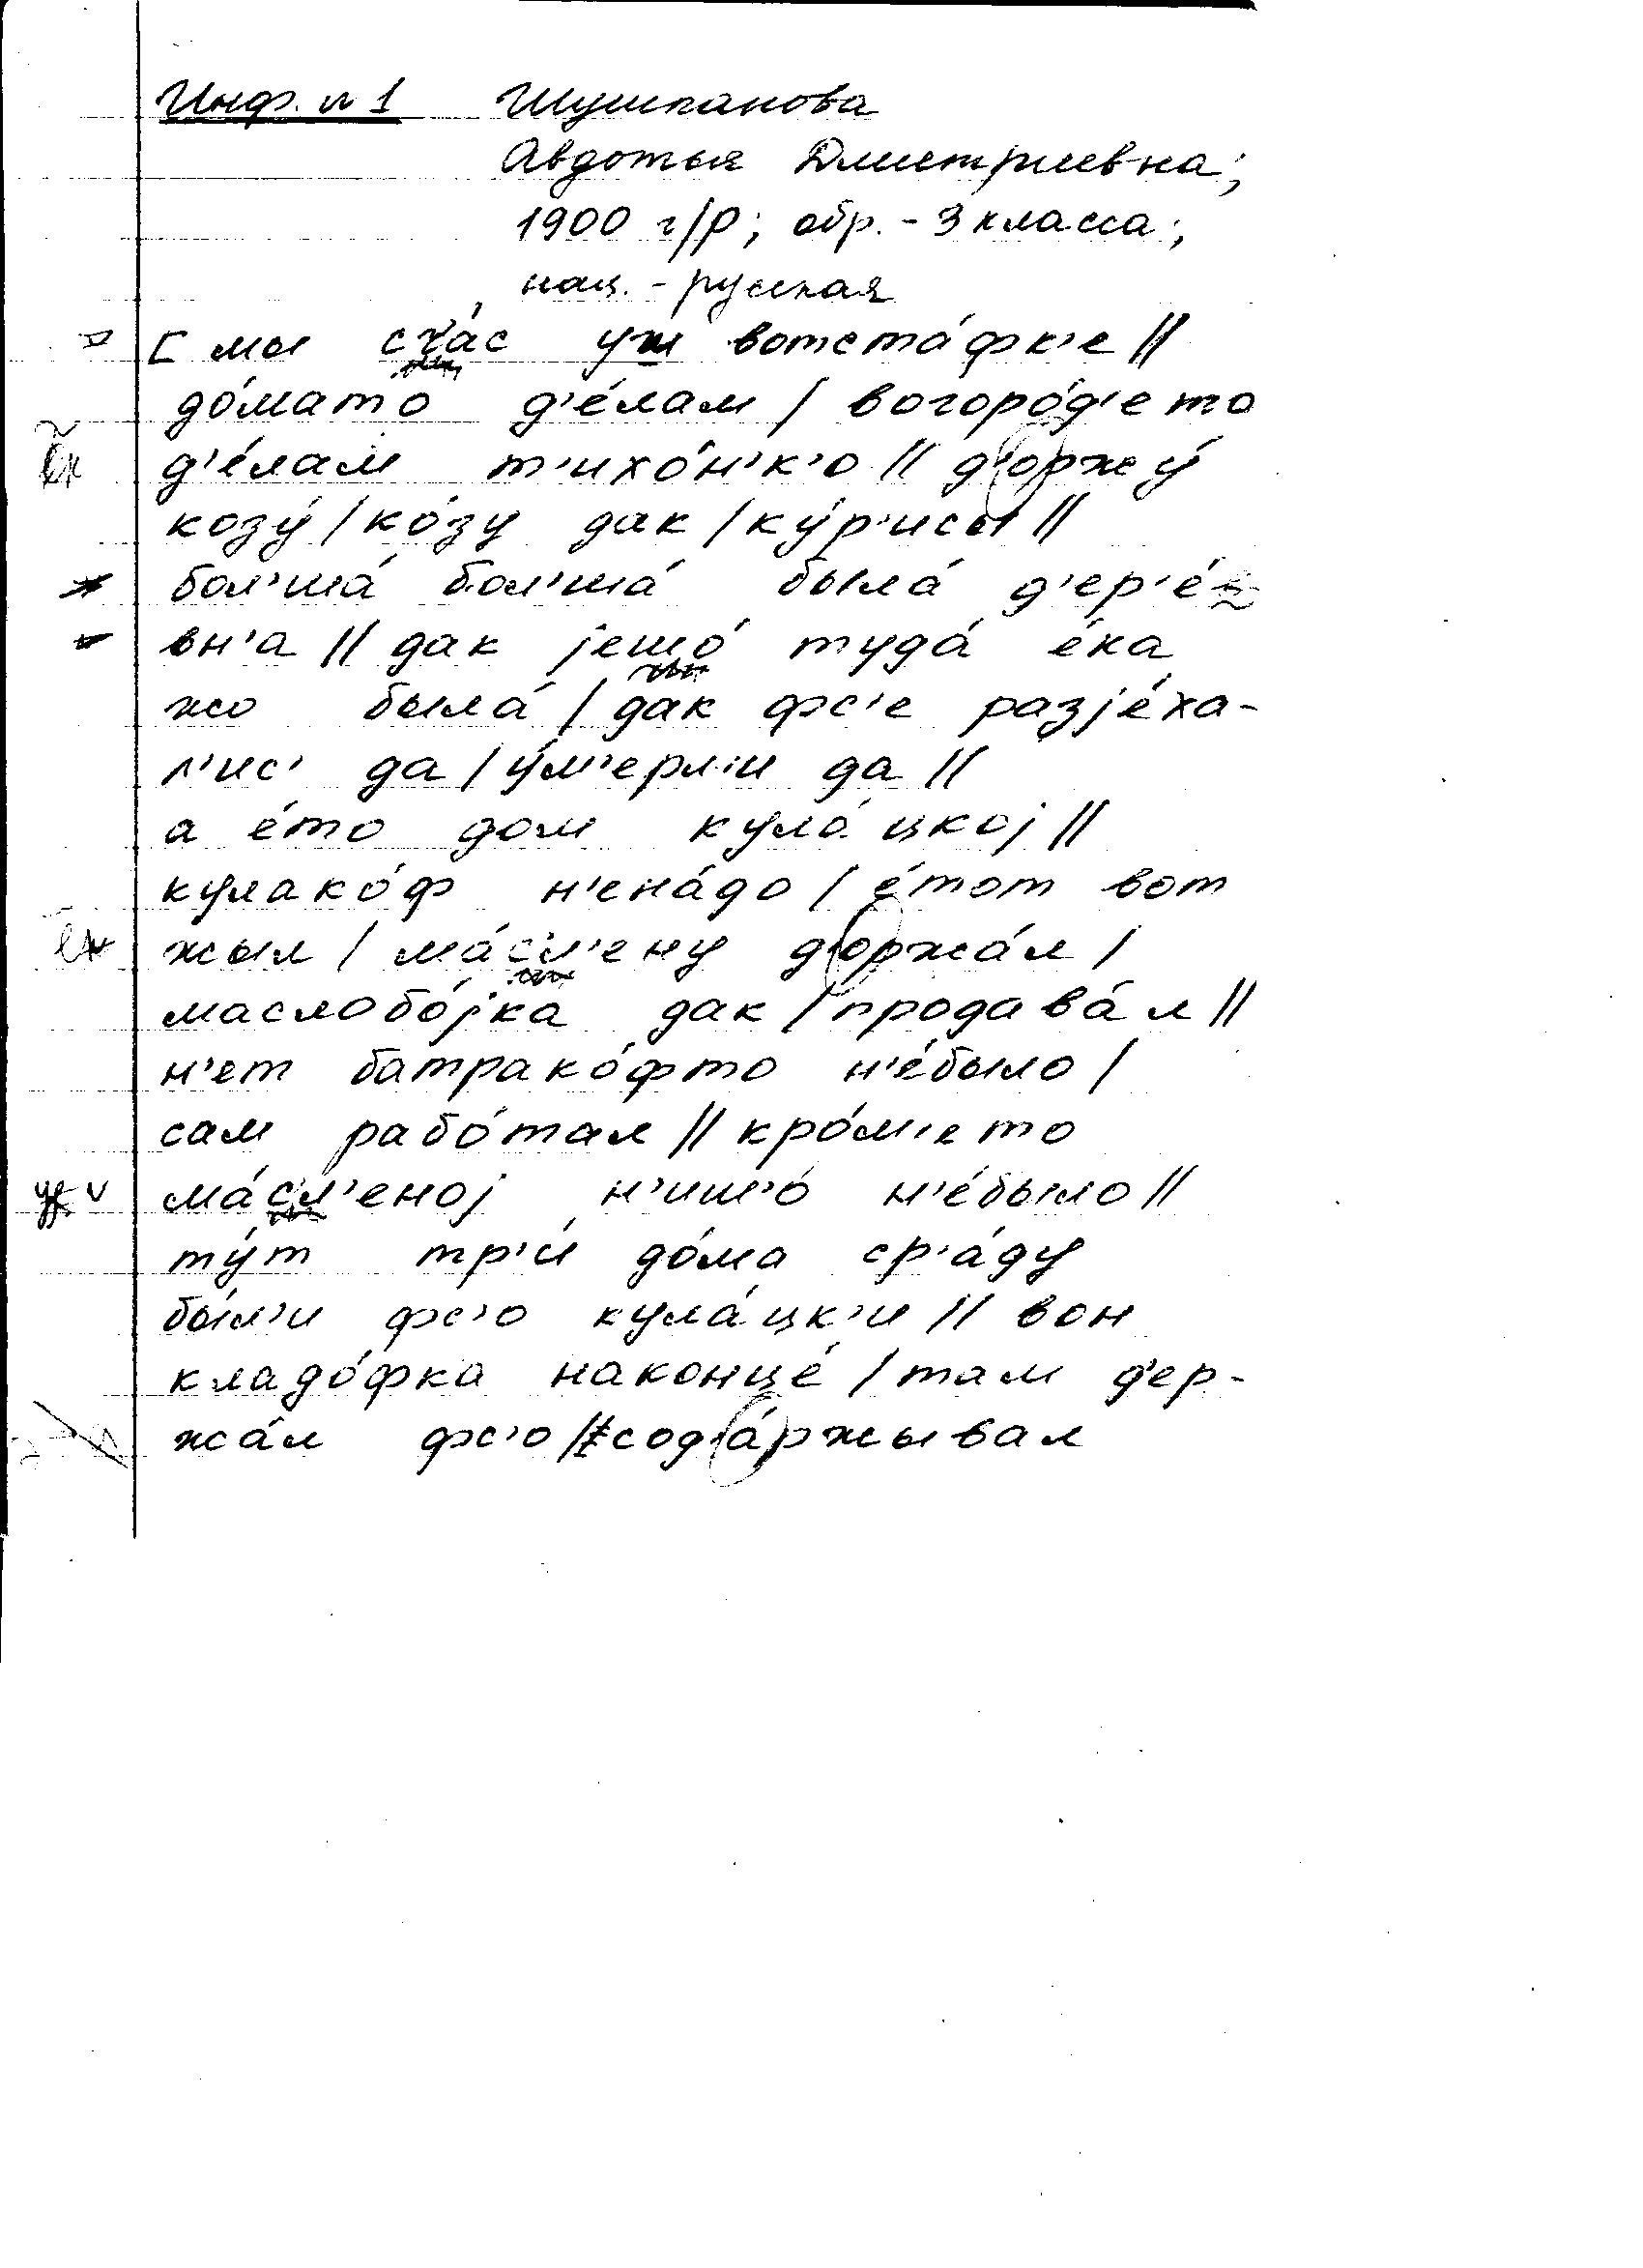 Инф. № 1 Шушпанова
Авдотья Дмитриевна;
1900 г/р; обр. - 3 класса;
нац. - русская
[ мы сч'ас уш вотста́фк'е //
до́мато д'е́лам / вогоро́д'ето
д'е́лам т'ихо́н'к'о // д'оржу́
козу́ / ко́зу дак / ку́р'исы //
бол'ша́ бол'ша́ была́ д'ер'е́
вн'а // дак јешо́ туда́ е́ка
жо была́ / дак фс'е разје́ха-
л'ис' да / у́м'ерл'и да //
а е́то дом кула́цкој //
кулако́ф н'ена́до / е́тот вот
жыл / ма́с'л'ену д'оржа́л /
маслобо́јка дак / продава́л //
н'ет батрако́фто н'е́было /
сам рабо́тал // кро́м'ето
ма́с'л'еној н'иш'о́ н'е́было //
ту́т тр'и́ до́ма ср'а́ду
бы́л'и фс'о кула́цк'и // вон
кладо́фка наконце́ / там д'ер-
жа́л фс'о // сод'а́ржывал